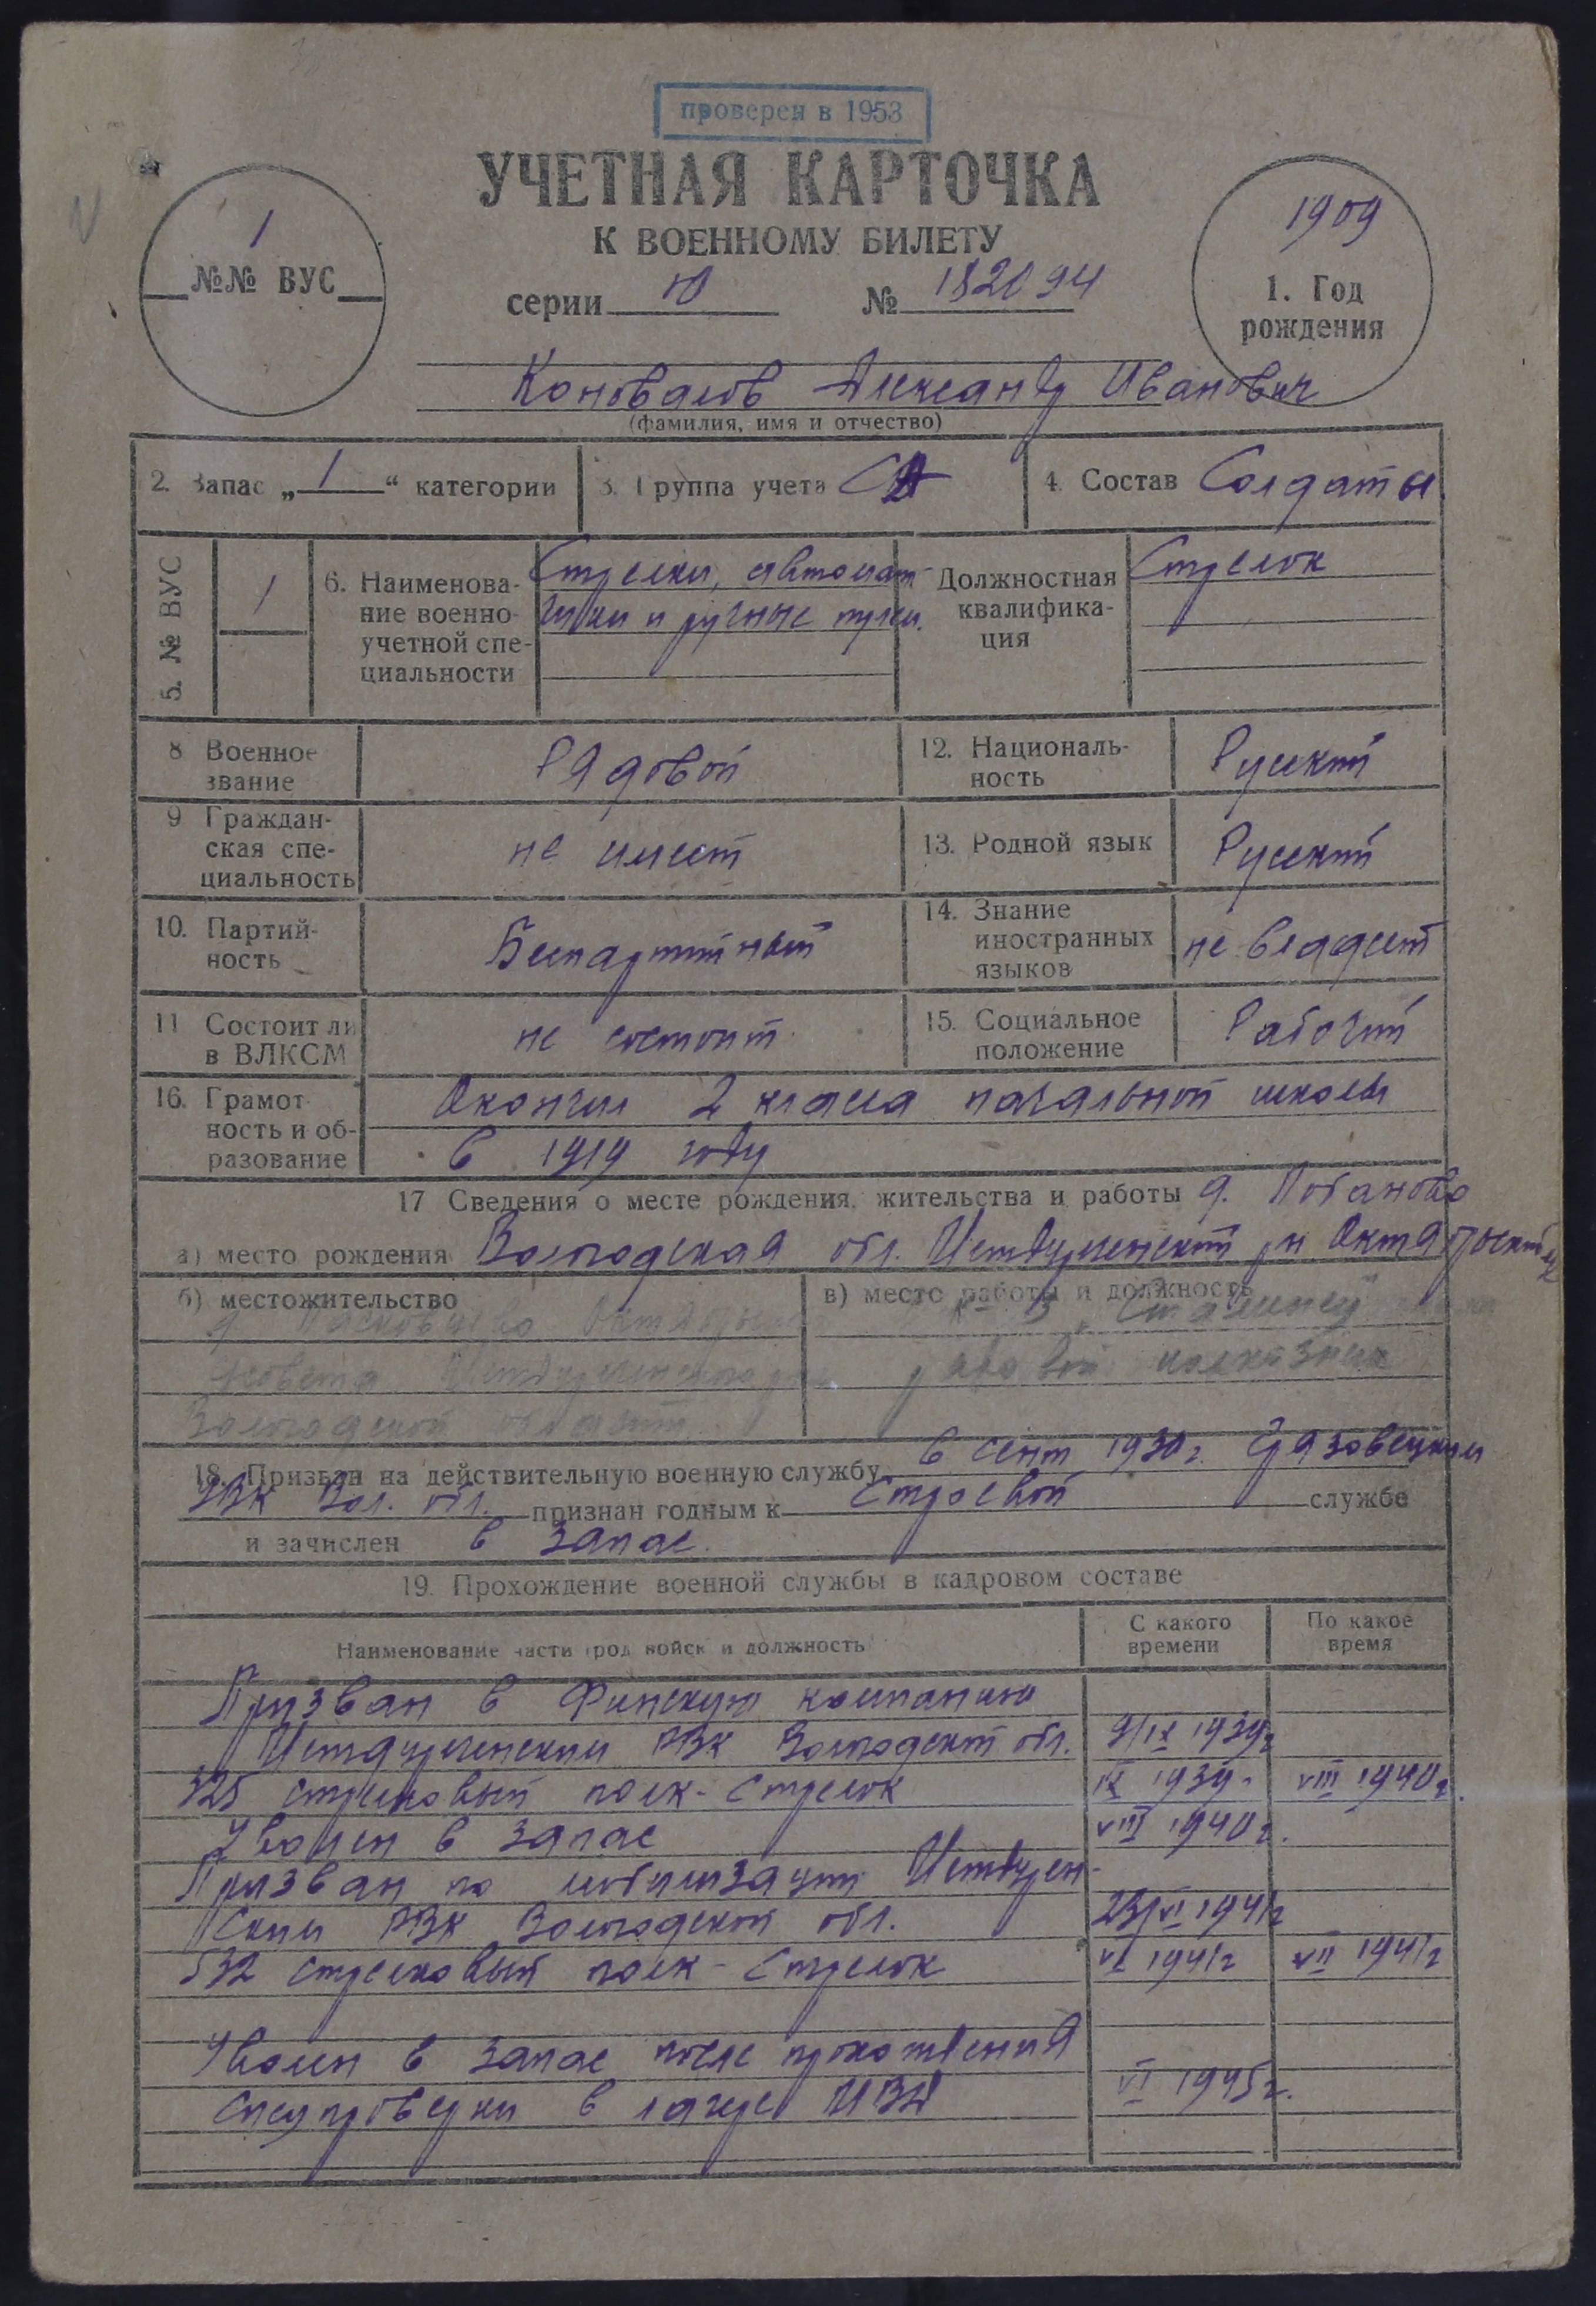 проверен в 1953
УЧЕТНАЯ КАРТОЧКА
К ВОЕННОМУ БИЛЕТУ
1
№№ ВУС
серии Ю № 182094
1909
1. Год
рождения
Коновалов Александр Иванович
(фамилия, имя и отчество)
2. Запас „1“ категории
3. Группа учета СА
4. Состав Солдаты
5. № ВУС
1
6. Наименова-
ние военно-
учетной спе-
циальности
Стрелки, автомат-
чики и ручные пулем.
Должностная
квалифика-
ция
Стрелок
8 Военное
звание
Рядовой
12. Националь-
ность
Русский
9 Граждан-
ская спе-
циальность
не имеет
13. Родной язык
Русский
10. Партий-
ность
Беспартийный
14. Знание
иностранных
языков
не владеет
11 Состоит ли
в ВЛКСМ
не состоит
15. Социальное
положение
Рабочий
16. Грамот-
ность и об-
разование
Окончил 2 класса начальной школы
в 1919 году
17 Сведения о месте рождения, жительства и работы д. Лобаново
а) место рождения Вологодская обл. Междуреченский рн Октябрьский
б) местожительство
Октябрьского
с/совета Междуреченского р-на
Вологодской области
в) место работы и должность
к-з "Сталинец"
рядовой колхозник
18. Призван на действительную военную службу в сент 1930 г. Грязовецким
РВК Вол. обл. признан годным к строевой службе
и зачислен в запас.
19. Прохождение военной службы в кадровом составе
Наименование части род войск и должность
С какого
времени
По какое
время
Призван в Финскую компанию
Междуреченским РВК Вологодской обл. 9/IX 1939г
325 стрелковый полк - Стрелок IX 1939г VIII 1940г.
Уволен в запас VIII 1940г.
Призван по мобилизации Междуречен-
ским РВК Вологодской обл. 23/VI 1941г
532 стрелковый полк - Стрелок VI 1941г VII 1941г
Уволен в запас после прохождения
спецпроверки в лагере VI 1945г.